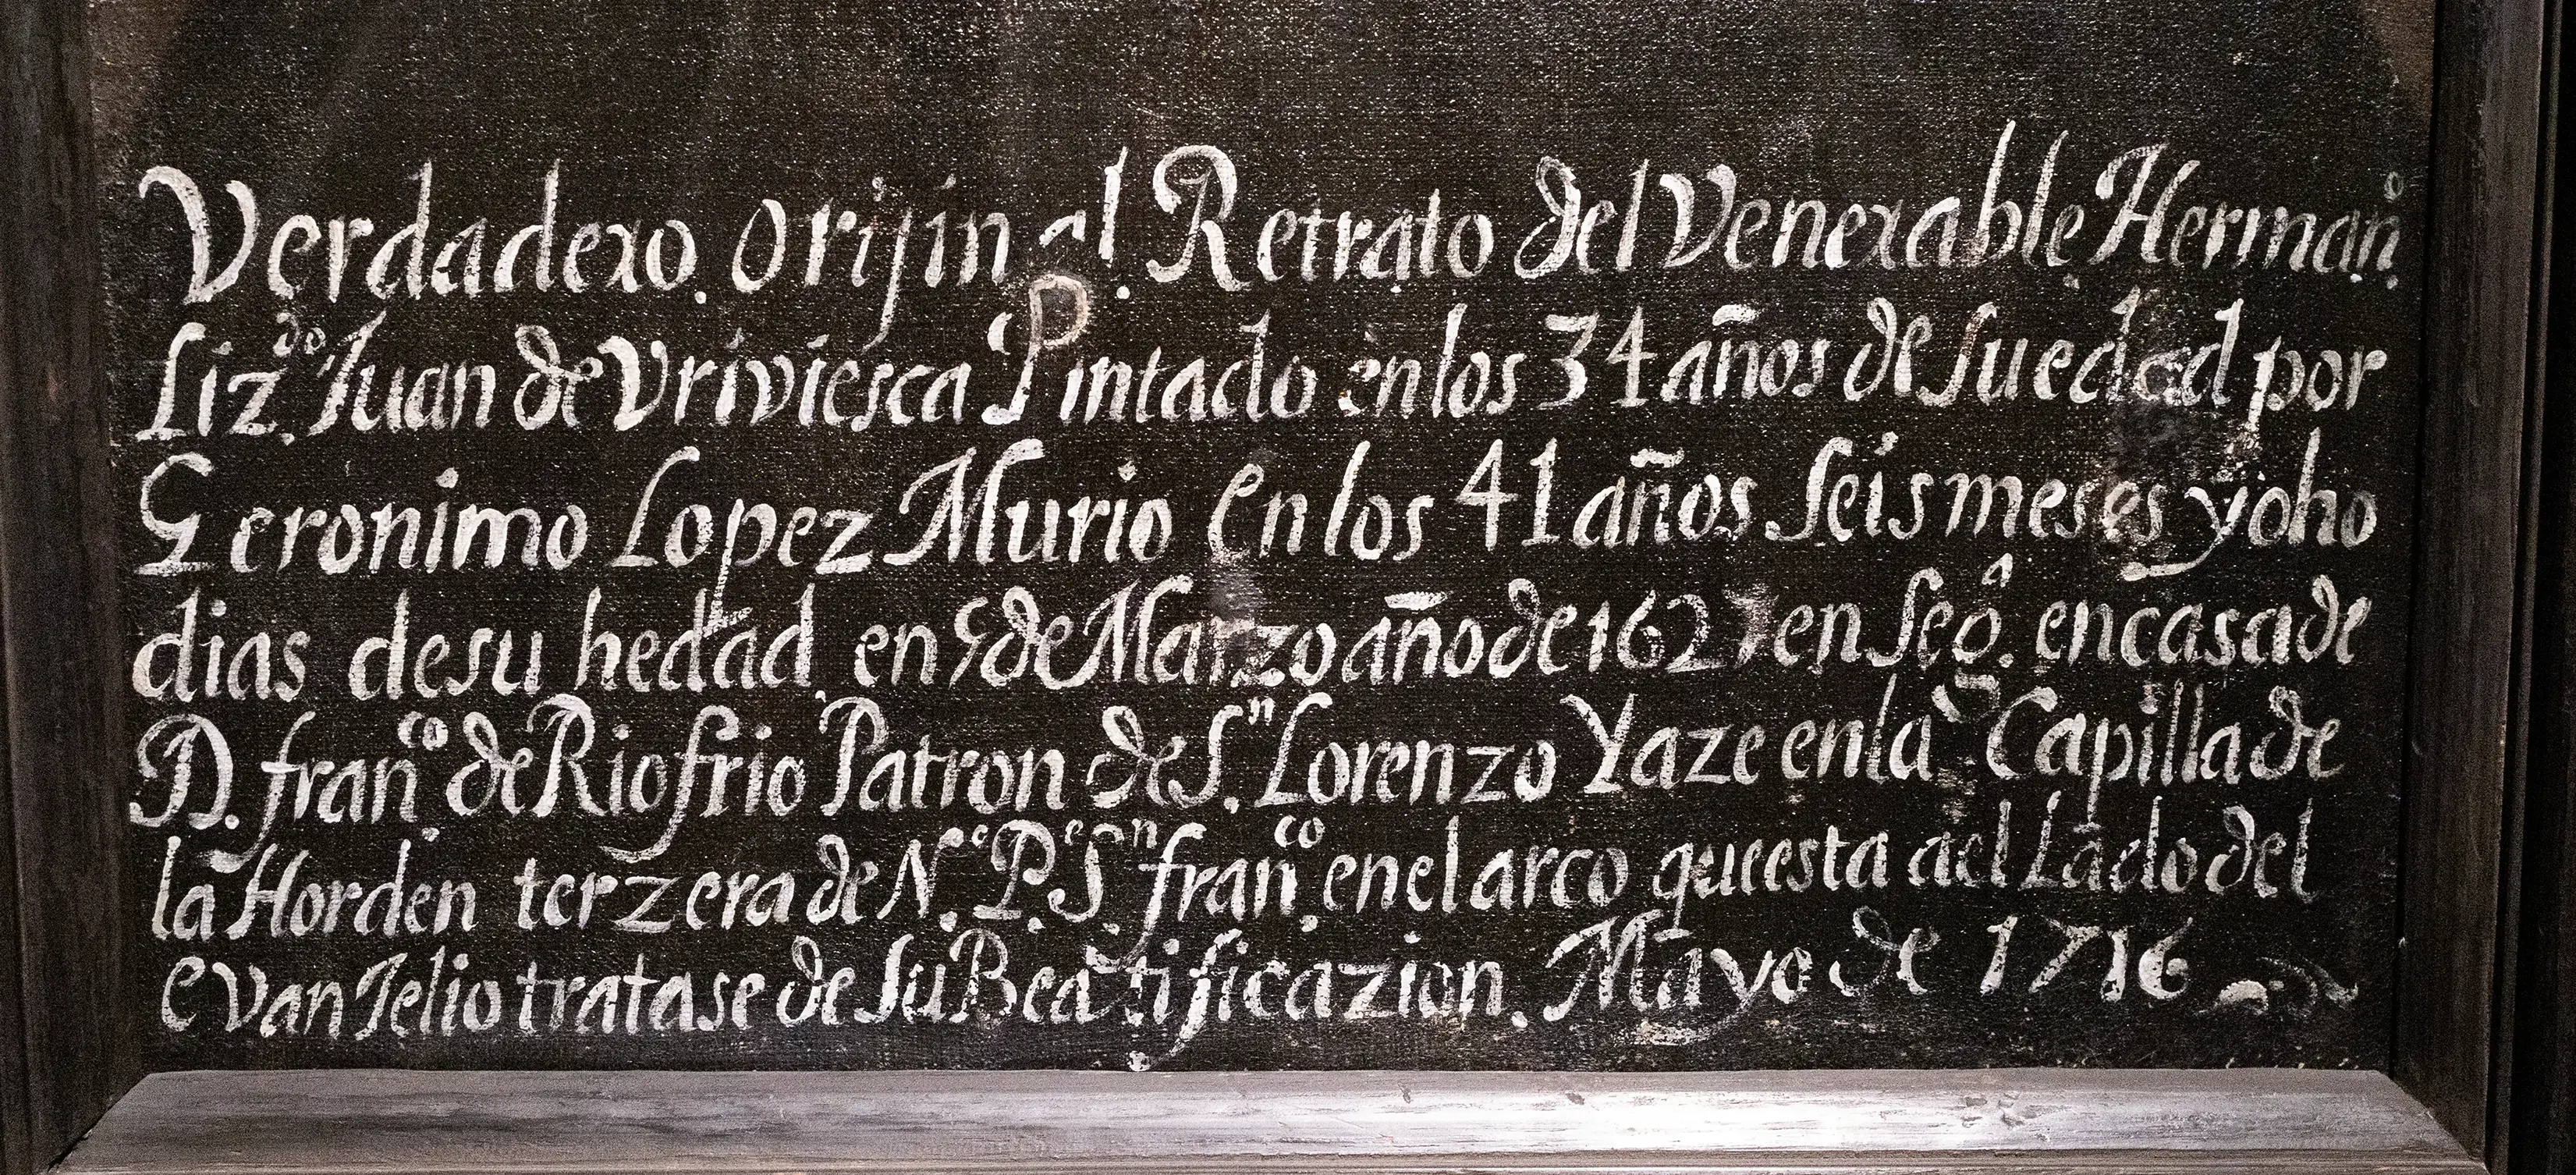 Verdadero. orijinal. Retrato del Venerable Herman̊.
Liz.ᵈᵒ Juan de Vriviesca Pintado en los 34 años de su edad por
Geronimo Lopez Murio en los 41 años seis meses y oho
dias de su hedad, en 5 de Marzo año de 162 en Segᵒ̂. en casa de
D. franᶜᵒ. de Riofrio Patron de S.ⁿ Lorenzo Yaze en la Capilla de
la Horden terzera de N.ᵒ P.ᵉ S.ⁿ franᶜᵒ. en el arco que esta ael Lado del
evanJelio tratase de su Beatificazion. Mayo de 1716